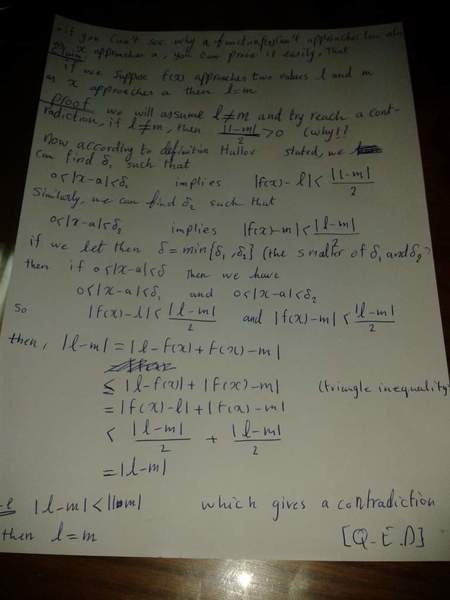 if you can't see why a function can't approaches two
as x approaches a, you can prove it easily, that
Claim: if we suppose f(x) approaches two values l and m
as x approaches a then l=m
Proof we will assume l≠m and try reach a cont-
radiction, if l≠m, then |l-m|/2 > 0 (why!?
Now according to definition Hallov stated, we
can find δ₁ such that
0<|x-a|<δ₁ implies |f(x)-l| < |l-m|/2
Similarly, we can find δ₂ such that
0<|x-a|<δ₂ implies |f(x)-m| < |l-m|/2
if we let then δ = min{δ₁,δ₂} (the smaller of δ₁ and δ₂
then if 0<|x-a|<δ then we have
0<|x-a|<δ₁ and 0<|x-a|<δ₂
So |f(x)-l| < |l-m|/2 and |f(x)-m| < |l-m|/2
then, |l-m| = |l-f(x)+f(x)-m|
≤ |l-f(x)| + |f(x)-m| (triangle inequality
= |f(x)-l| + |f(x)-m|
< |l-m|/2 + |l-m|/2
= |l-m|
|l-m| < |l-m| which gives a contradiction
then l=m [Q.E.D]